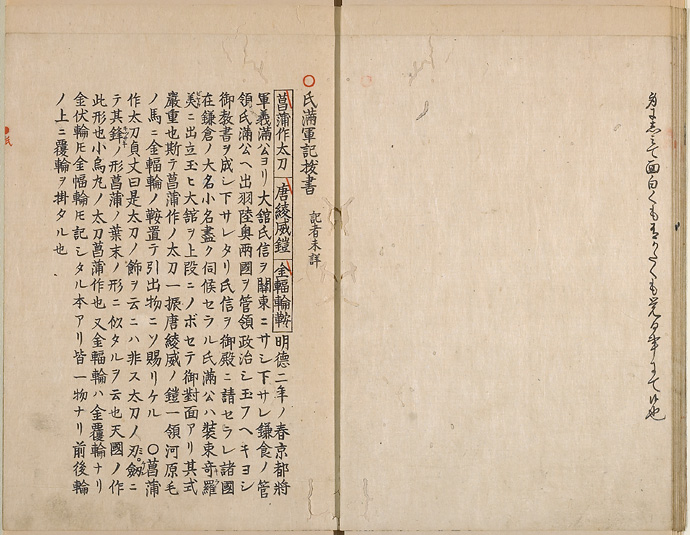 面白くも
○氏滿軍記抜書 記者未詳
菖蒲作太刀 唐綾威鎧 金輻輪鞍 明德二年ノ春京都將
軍義滿公ヨリ大舘氏信ヲ關東ニサシ下サレ鎌倉ノ管
領氏滿公ヘ出羽陸奥兩國ヲ管領政治シ玉フヘキヨシ
御教書ヲ成シ下サレタリ氏信ヲ御殿ニ請セラレ諸國
在鎌倉ノ大名小名盡ク伺候セラル氏滿公ハ裝束奇羅
美ニ出立玉ヒ大舘ヲ上段ニノボセテ御對面アリ其式
嚴重也斯テ菖蒲作ノ太刀一振唐綾威ノ鎧一領河原毛
ノ馬ニ金輻輪ノ鞍置テ引出物ニソ賜リケル ○菖蒲
作太刀貞丈曰是太刀ノ飾ヲ云ニハ非ス太刀ノ刃劔ニ
テ其鋒ノ形菖蒲ノ葉末ノ形ニ似タルヲ云也天國ノ作
此形也小烏丸ノ太刀菖蒲作也 又金輻輪ハ金覆輪ナリ
金伏輪𪜈金幅輪𪜈記シタル本アリ皆一物ナリ前後輪
ノ上ニ覆輪ヲ掛タル也